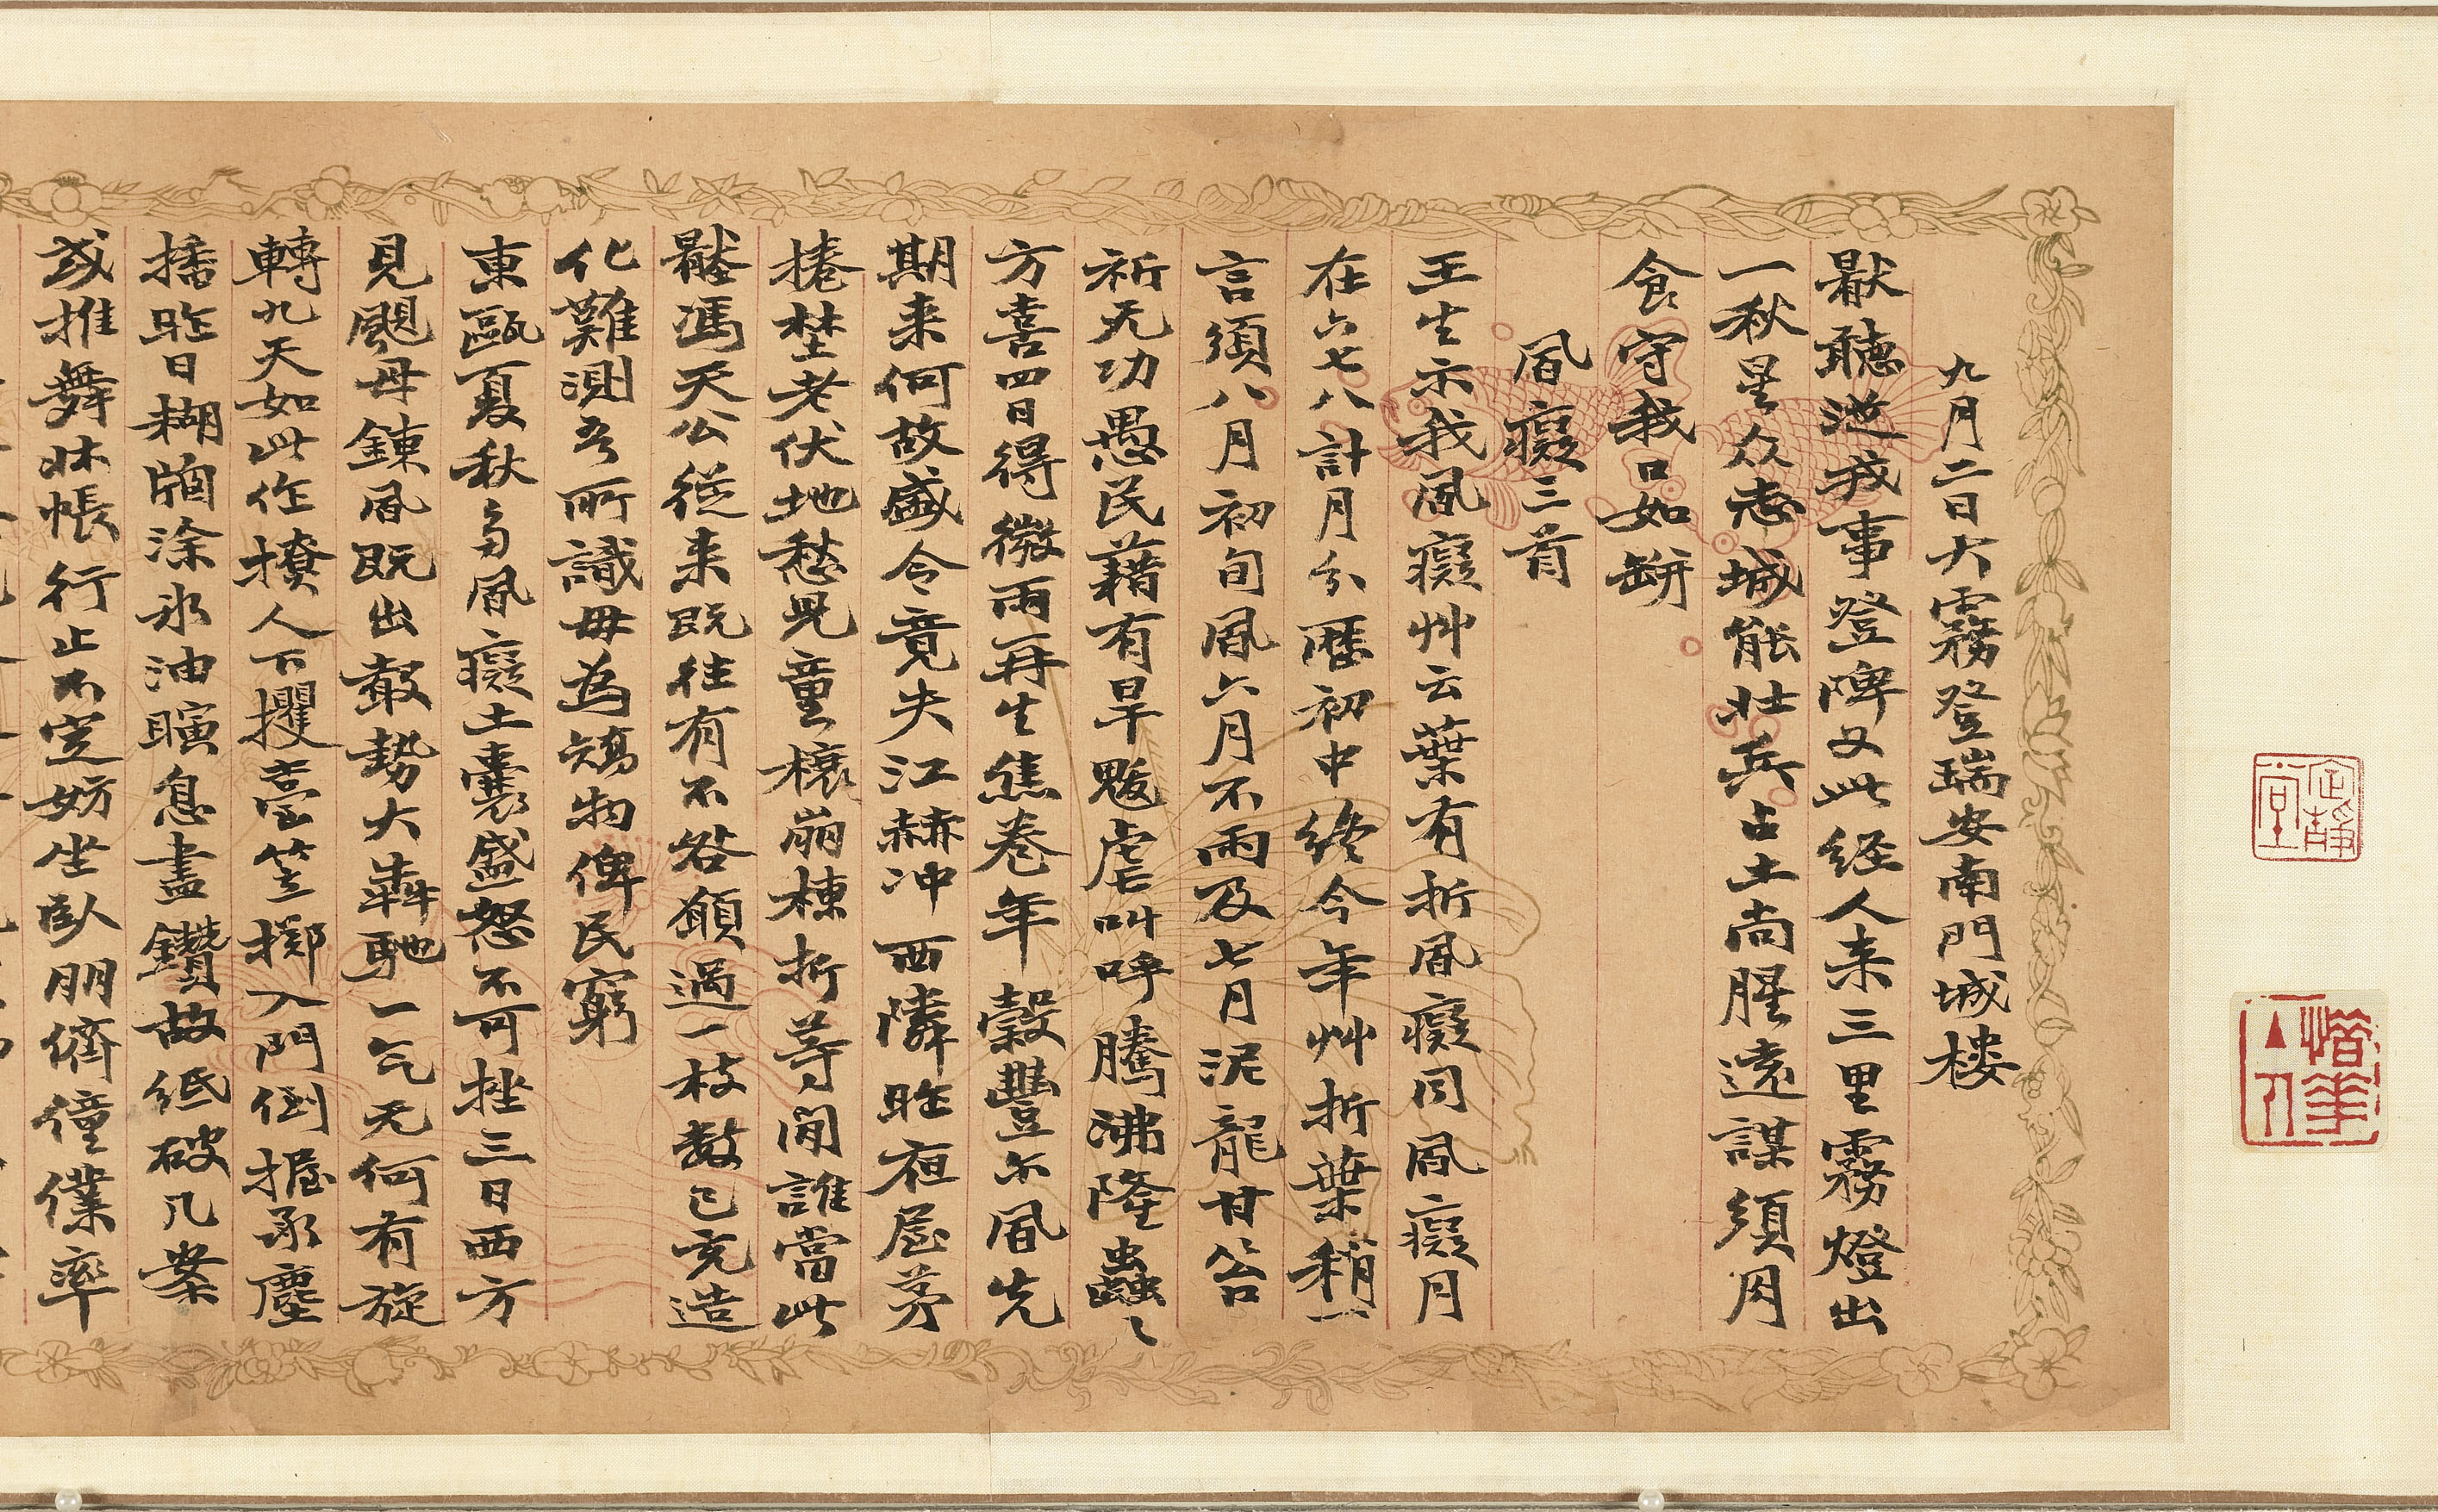 九月二日大霧登瑞安南門城楼
厭聽逆我事登陴又此經人来三里霧燈出
一秋星众志城能壮兵占土尚腥遠謀須固
食守我口如缾
風癡三首
王生示我風癡艸云葉有折風癡同風癡月
在六七八計月分歷初中終今年艸折葉稍一
言須八月初旬風六月不雨及七月泥龍甘答
祈无功愚民藉有旱魃虐叫呼騰沸隆蟲〻
方喜四日得微雨再生焦卷年穀豐尔風先
期来何故盛令竟夫江赫冲西隣昨夜屋茅
捲埜老伏地愁児童榱崩棟折等閒誰當此
罷馮天公從来既往有不咎願過一枝數已充造
化難測吾所識毋為殃物俾民窮
東甌夏秋多風癡土囊盛怒不可挫三日西方
見颶母鍊風既出彀勢大犇馳一气无何有旋
轉九天如此作撩人下攫臺笠擲入門倒握承塵
播昨日糊牖涂氷油瞚息盡鑽故紙破几案
或推舞牀帳行止不定妨坐臥朋儕僮僕率
定靜堂
惜華人